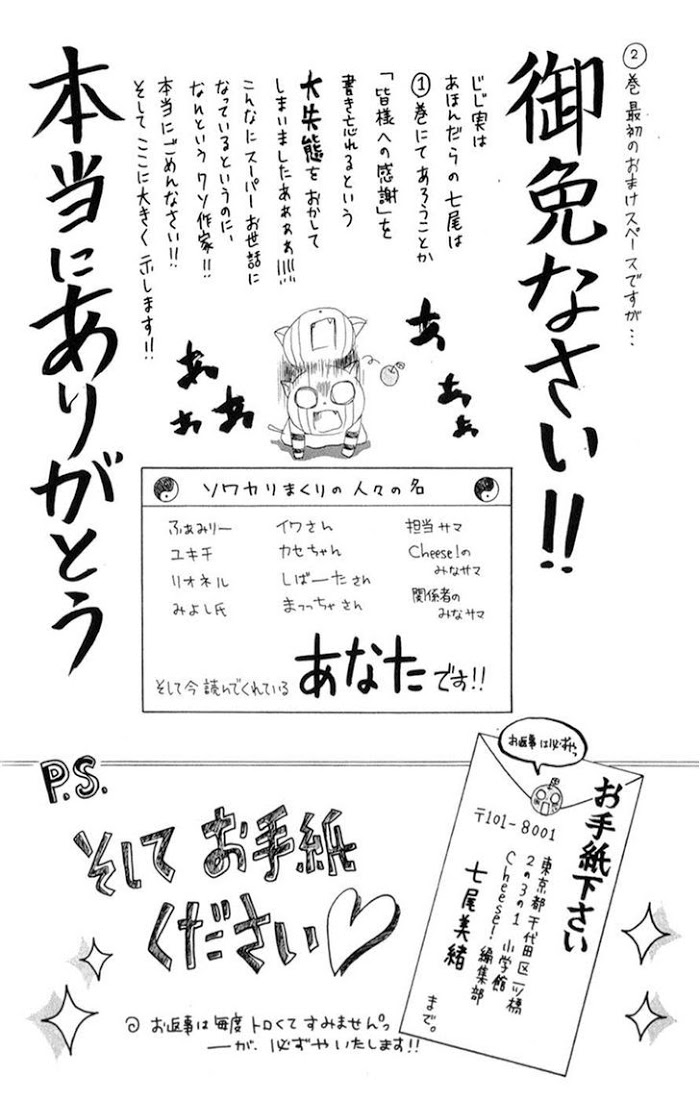 ②巻 最初のおまけスペースですが…
御免なさい!!
じじ実は
あほんだらの 七尾は
①巻にて あろうことか
「皆様への感謝」を
書き忘れるという
大失態を おかして
しまいましたあぁぁぁ!!!!!
こんなにスーパーお世話に
なっているというのに、
なんという クソ作家!!
本当にごめんなさい!!
そして ここに大きく 示します!!
本当にありがとう
あ
あ
あ
あ
あ
あ
ソワカリまくりの人々の名
ふぁみりー
ユキチ
リオネル
みよし氏
イワさん
カセちゃん
しばーたさん
まっちゃさん
担当サマ
Cheese!の
みなサマ
関係者の
みなサマ
そして今 読んでくれている あなた です!!
P.S.
そして お手紙
ください♡
お返事は必ずやっ
お手紙下さい
〒101-8001
東京都千代田区一ツ橋
2の3の1 小学館
Cheese! 編集部
七尾美緒
まで。
お返事は毎度トロくてすみませんっ
ーが、必ずやいたします!!